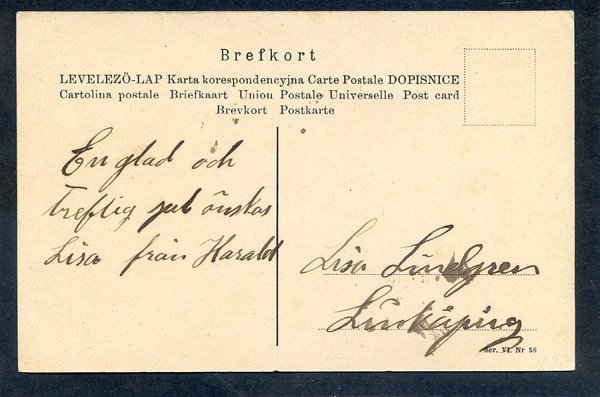 Brefkort
LEVELEZÖ-LAP Karta korespondencyjna Carte Postale DOPISNICE
Cartolina postale Briefkaart Union Postale Universelle Post card
Brevkort Postkarte
En glad och
treflig jul önskas
Lisa från Harald
Lisa Lindgren
Linköping
Ser. VI. Nr 58